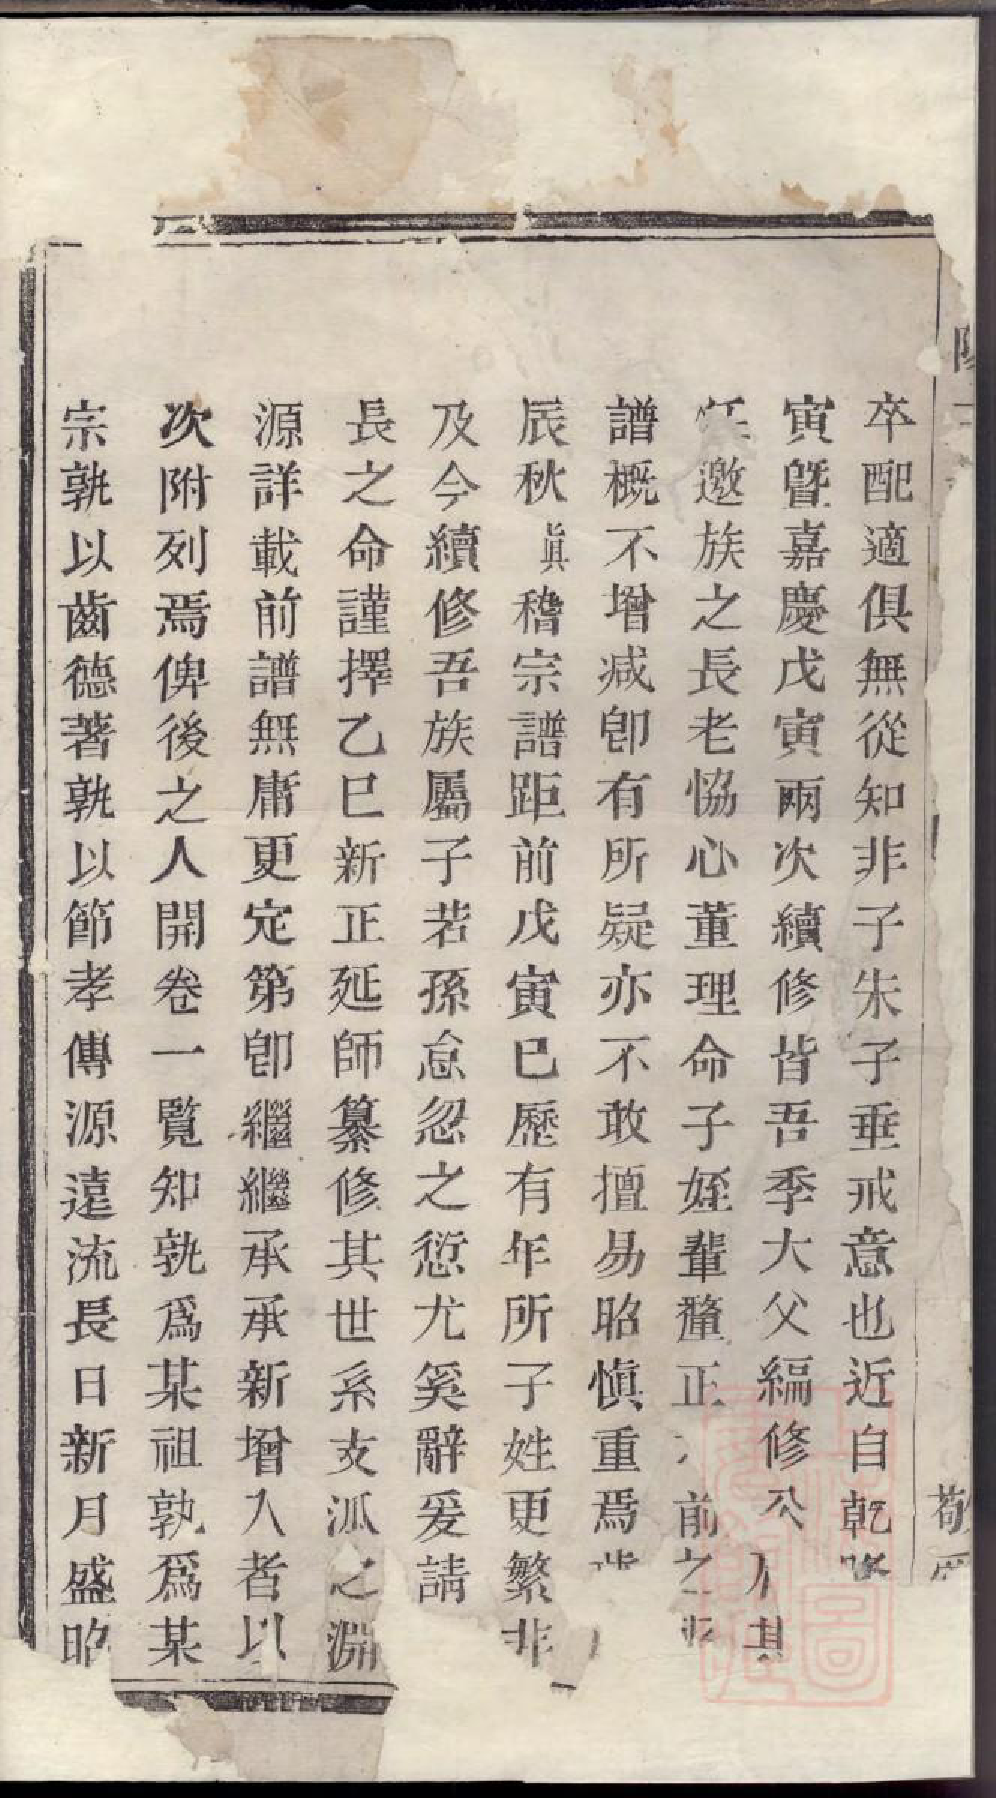 卒配適俱無從知非子朱子垂戒意也近自乾
寅曁嘉慶戊寅兩次續修皆吾季大父編修公 其
任邀族之長老恊心董理命子姪輩釐正 前之
譜概不增减卽有所疑亦不敢擅易昭愼重焉
辰秋眞稽宗譜距前戊寅已歷有年所子姓更繁非
及今續修吾族屬子若孫怠忽之愆尤奚辭爰請
長之命謹擇乙巳新正延師纂修其世系支派之淵
源詳載前譜無庸更定第卽繼繼承承新增入者以
次附列焉俾後之人開卷一覽知孰爲某祖孰爲某
宗孰以齒德著孰以節孝傳源遠流長日新月盛昭